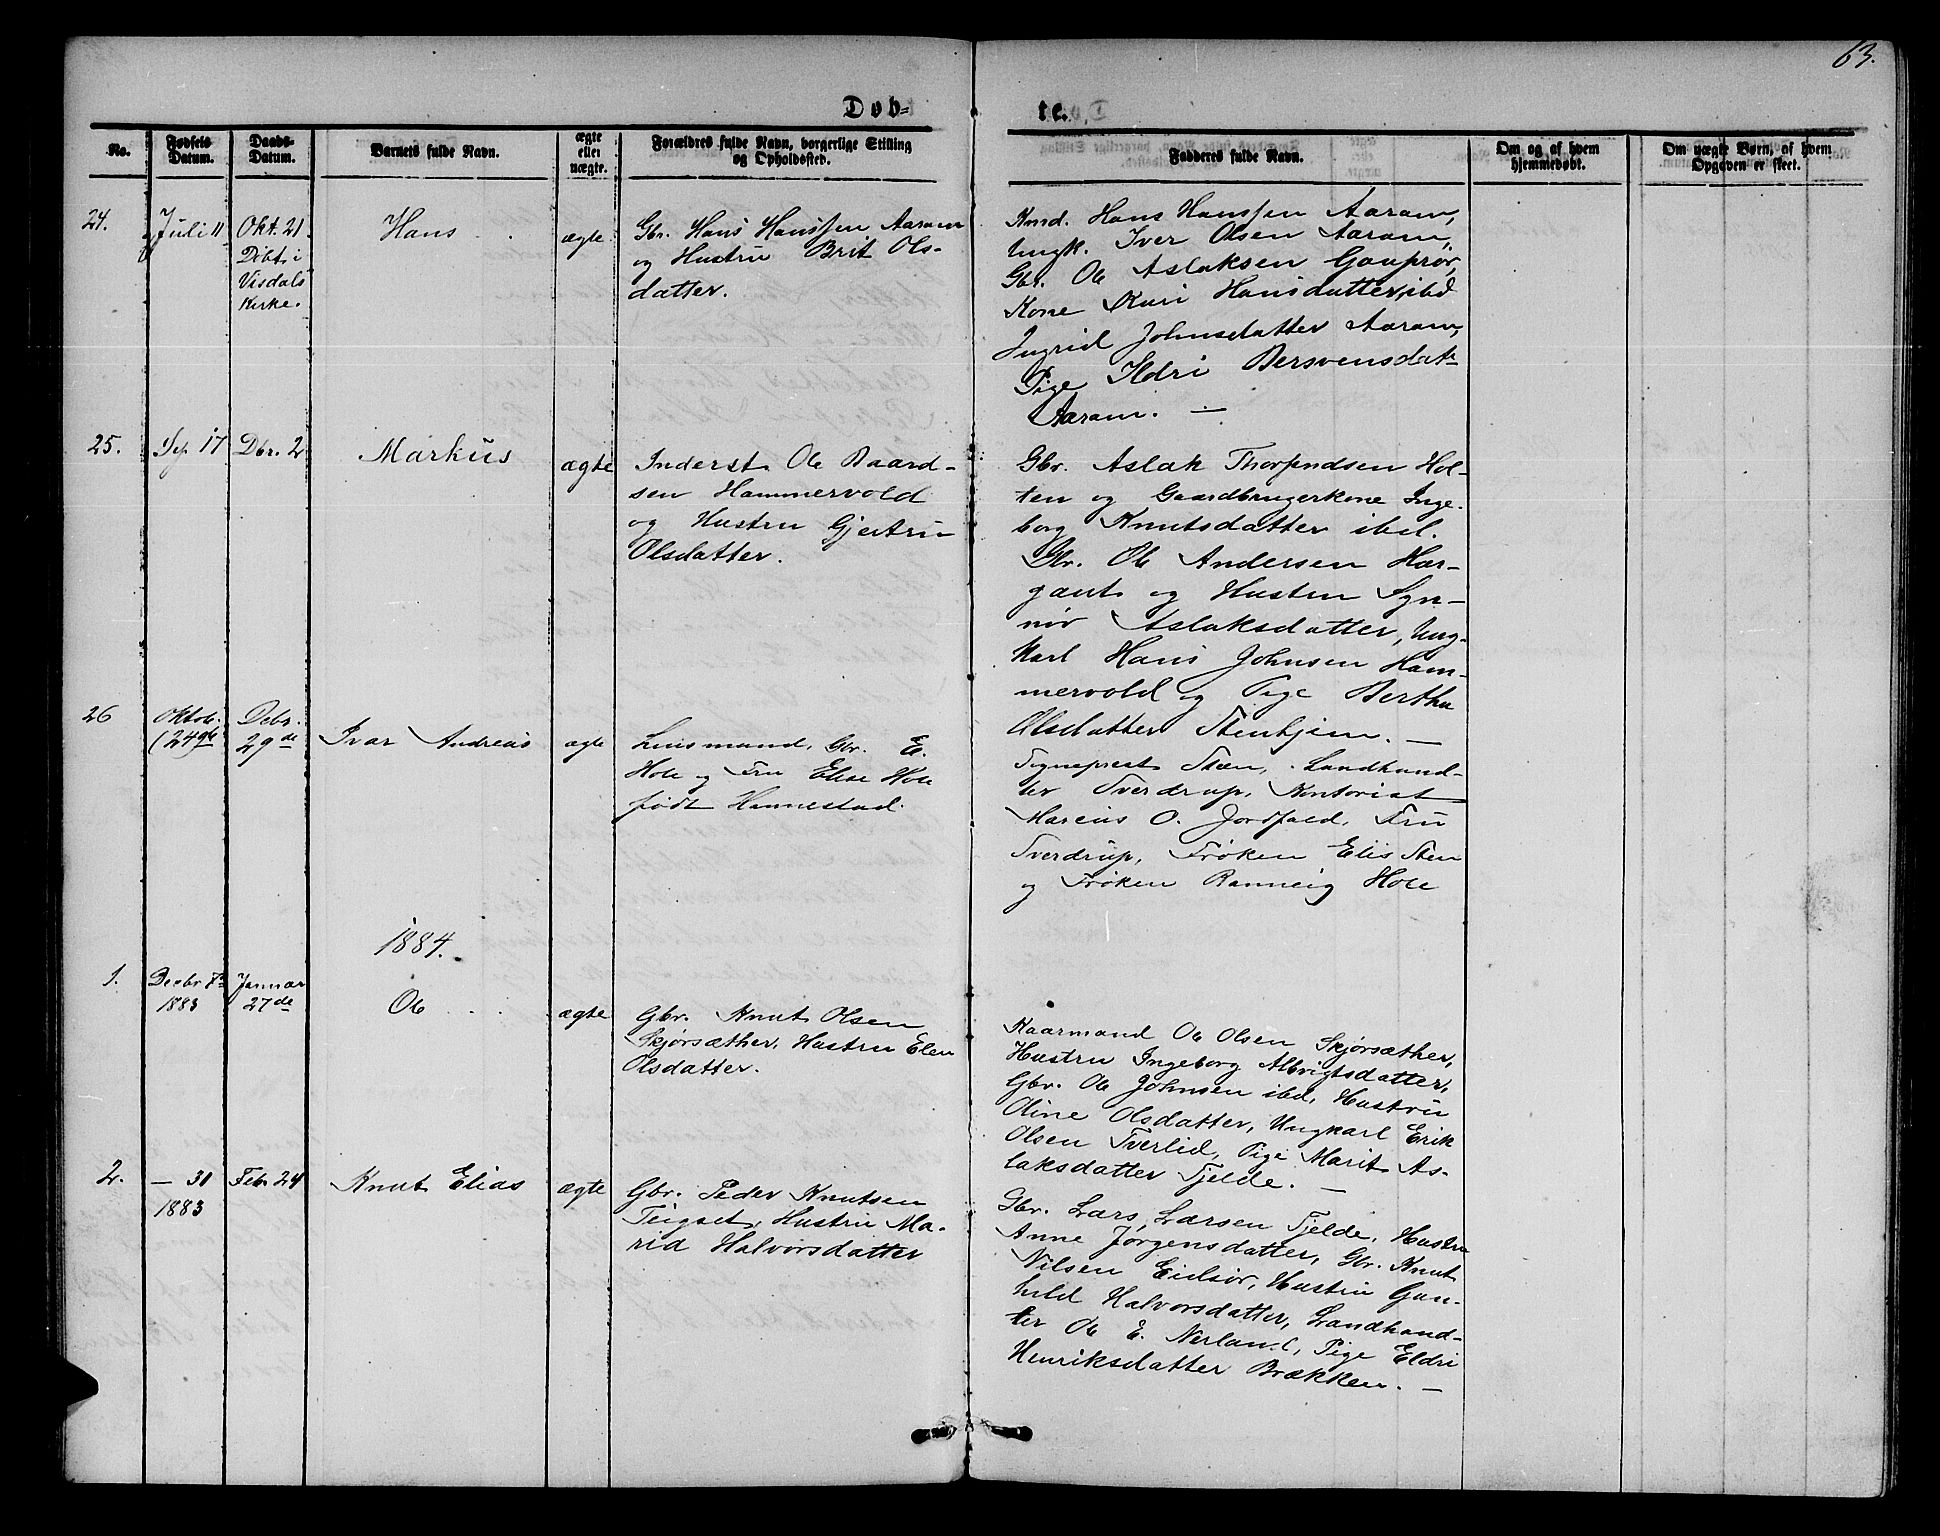 63.
Døb-
te.
No.
Fødsels Datum.
Daabs-Datum.
Barnets fulde Navn.
ægte eller uægte.
Forældres fulde Navn, borgerlige Stilling og Opholdssted.
Fadderes fulde Navn.
Om og af hvem hjemmedøbt.
Om uægte Børn, af hvem Opgaven er skeet.
24.
Juli 11
Okt. 21
Døbt i
Visdals
Kirke.
Hans
ægte
Gbr. Hans Hanssen Aaram
og Hustru Brit Ols-
datter.
Kmd. Hans Hanssen Aaram,
Ungk. Iver Olsen Aaram,
Gbr. Ole Aslaksen Gauprør,
Kone Kari Hansdatter ibd
Ingrid Johnsdatter Aaram,
Pige Ildri Bersvensdat-
Aaram. —
25.
Sep 17
Dbr. 2
Markus
ægte
Inderst Ole Baard-
sen Hammervold
og Hustru Gjertru
Olsdatter.
Gbr. Aslak Thorfindsen Hol-
ten og Gaardbrugerkone Inge-
borg Knutsdatter ibd.
Gbr. Ole Andersen Har-
gaut og Hustru Syn-
növ Aslaksdatter, Ung-
karl Hans Johnsen Ham-
mervold og Pige Bertha
Olsdatter Stenhjem. —
26
Oktob.
(24de
Debr.
29de
Ivar Andreas
ægte
Lensmand, Gbr. E.
Hole og Fru Elise Hole
født Hannestad.
Sogneprest Steen, Landhand-
ler Sverdrup, Kontorist
Marius O. Jordfald, Fru
Sverdrup, Frøken Elis Sten
og Frøken Ranneig Hole
1884.
1.
Decbr 7de
1883
Januar
27de
Ole
ægte
Gbr. Knut Olsen
Skjørsæther, Hustru Elen
Olsdatter.
Kaarmand Ole Olsen Skjørsæther,
Hustru Ingeborg Albrigtsdatter,
Gbr. Ole Johnsen ibd, Hustru
Oline Olsdatter, Ungkarl Erik
Olsen Tverlid, Pige Marit As-
laksdatter Fjelde. —
2.
— 31
1883
Feb. 24
Knut Elias
ægte
Gbr. Peder Knutsen
Teigset, Hustru Ma-
rid Halvorsdatter
Gbr. Lars Larsen Fjelde, Hustru
Anne Jørgensdatter, Gbr. Knut
Nilsen Eidsør, Hustru Gun-
hild Halvorsdatter, Landhand-
ler Ole E. Nerland, Pige Eldri
Henriksdatter Brækken. —